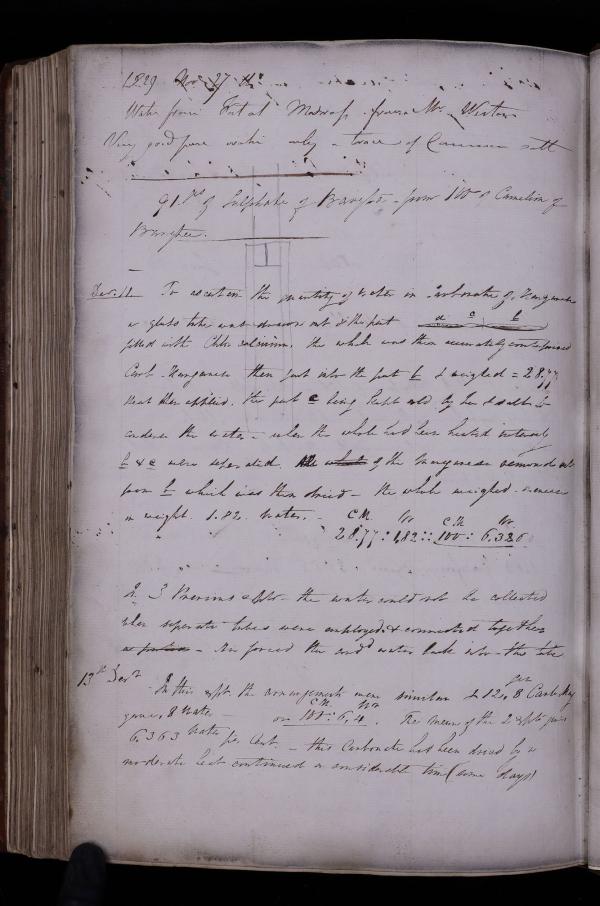 1829 Nov 27th
Water from Fort at Madras from Mr.
Very good pure water only a trace of Common salt
91. of Sulphate of Barytes from 100 of Camelion of
Barytes.
Dec. 11 To ascertain the quantity of water in Carbonate of Manganese
a glass tube was drawn out & the part a c b
filled with Chlo calcium. the whole was then accurately
Carb Manganese then put into the part b & weighed = 28.77
heat then applied. the part c being kept cold by ice & salt to
condense the water - when the whole had been heated intensely
b & c were separated. the whole of the Manganese removed
from b which was then dried - the whole weighed
in weight 1.82 water. - C.M. Wr C.M Wr.
28.77 : 1.82 :: 100 : 6.326
In 3 Previous expts - the water could not be collected
when seperate tubes were employed & connected together
- Air forced the cond water back into the tube
13th Decr In this expt. the arrangements were similar & 12.8 Carb
gave .8 water - or C.M. 100 : Wr 6.4. The mean of the 2 expts gives
6.363 water per Cent. - this Carbonate had been dried by a
moderate heat continued a considerable time (some days)